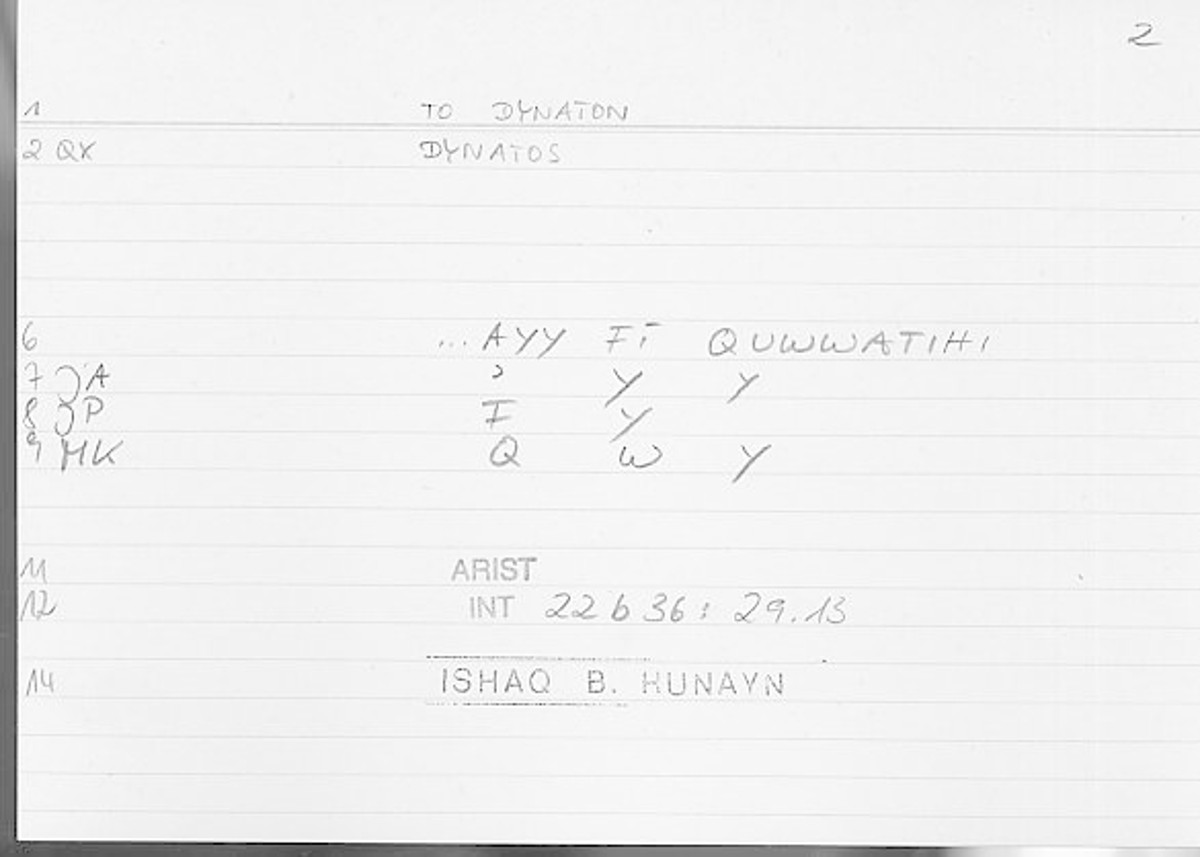 2
1 TO DYNATON
2 QX DYNATOS
6 ... AYY FĪ QUWWATIHI
7 A ʾ Y Y
8 P F Y
9 MK Q W Y
11 ARIST
12 INT 22 b 36 : 29.13
14 ISHAQ B. HUNAYN